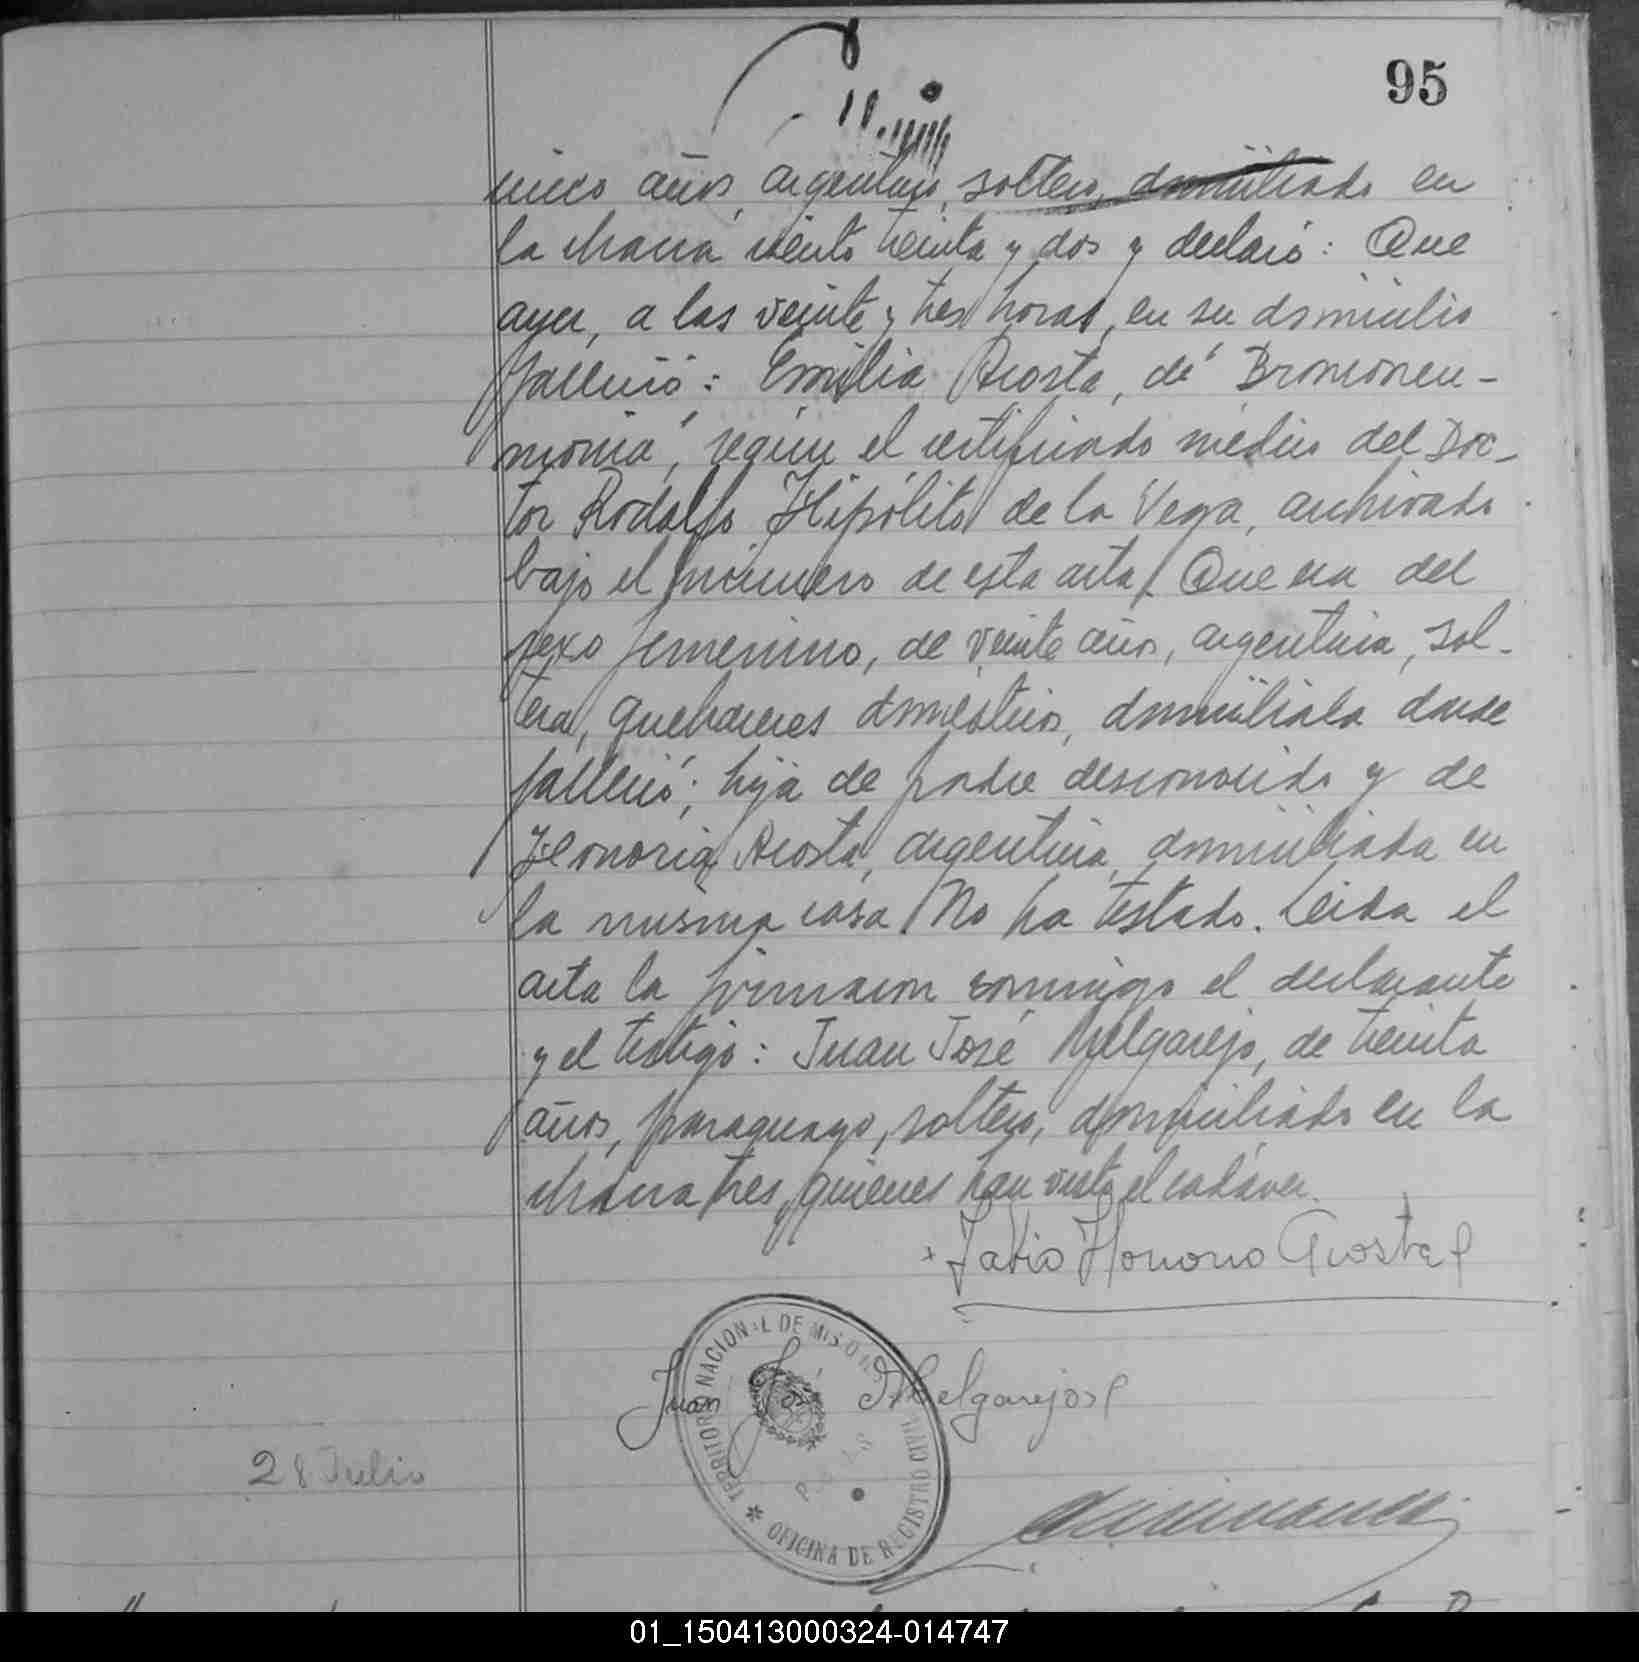 95
cinco años, argentino, soltero, domiciliado en
la chacra ciento treinta y dos y declaró: Que
ayer, a las veinte y tres horas, en su domicilio
falleció: Emilia Acosta, de "Bronconeu-
monia", según el certificado médico del Doc-
tor Rodolfo Hipólito de la Vega, archivado
bajo el número de esta acta. Que era del
sexo femenino, de veinte años, argentina, sol-
tera, quehaceres domésticos, domiciliada donde
falleció; hija de padre desconocido y de
Honoria Acosta, argentina, domiciliada en
la misma casa. No ha testado. Leida el
acta la firmaron conmigo el declarante
y el testigo: Juan José Melgarejo, de treinta
años, paraguayo, soltero, domiciliado en la
chacra tres, quienes han visto el cadáver.
Fabio Honorio Acosta
Juan José Melgarejo
TERRITORIO NACIONAL DE MISIONES
OFICINA DE REGISTRO CIVIL
28 Julio
01_150413000324-014747